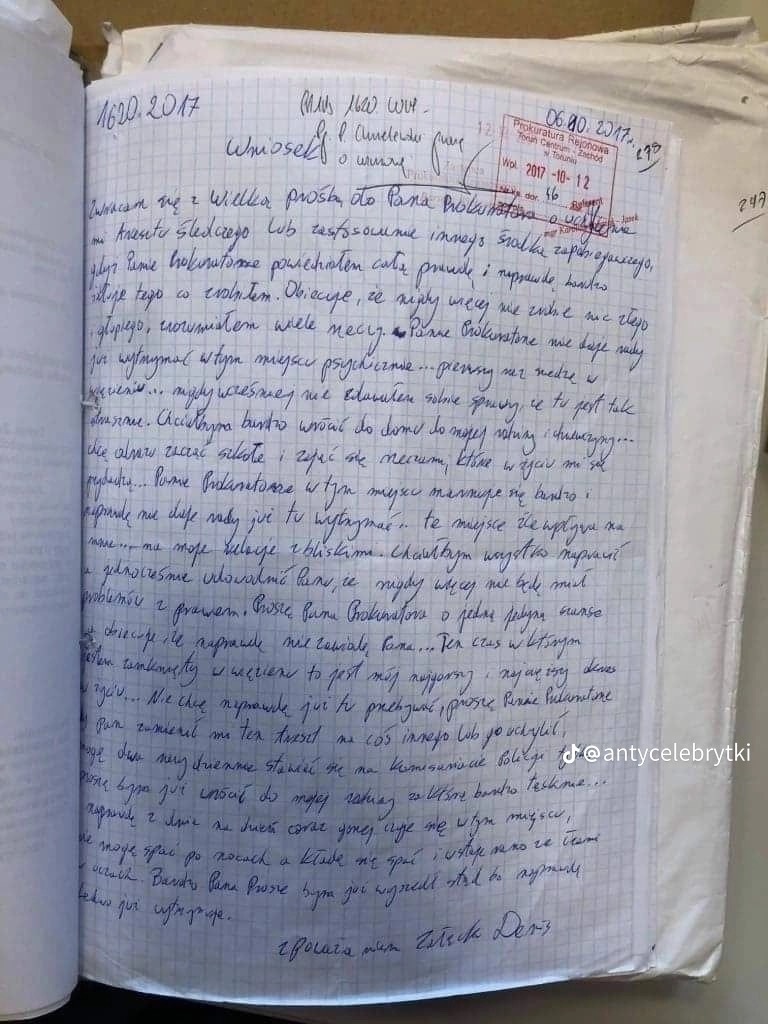 1620.2017
06.10.2017r.
298
Wniosek
o
Prokuratura Rejonowa
Toruń Centrum - Zachód
w Toruniu
Wpł. 2017 -10- 12
297
Zwracam się z wielką prośbą do Pana Prokuratora o uchylenie
mi Aresztu Śledczego lub zastosowanie innego środka zapobiegawczego,
gdyż Panie Prokuratorze powiedziałem całą prawdę i naprawdę bardzo
żałuje tego co zrobiłem. Obiecuje, że nigdy więcej nie zrobie nic złego
i głupiego, zrozumiałem wiele rzeczy. Panie Prokuratorze nie daje rady
już wytrzymać w tym miejscu psychicznie... pierwszy raz siedzę w
więzieniu... nigdy wcześniej nie zdawałem sobie sprawy, że tu jest tak
strasznie. Chciałbym bardzo wrócić do domu do mojej rodziny i dziewczyny...
chcę odrazu zacząć szkołe i zająć się rzeczami, które w życiu mi się
przydadzą... Panie Prokuratorze w tym miejscu marnuje się bardzo i
naprawdę nie daje rady już tu wytrzymać.. te miejsce źle wpływa na
mnie... na moje relacje z bliskimi. Chciałbym wszystko naprawić
a jednocześnie udowodnić Panu, że nigdy więcej nie będę miał
problemów z prawem. Proszę Pana Prokuratora o jedną jedyną szanse
obiecuje, że naprawdę nie zawiodę Pana... Ten czas w którym
jestem zamknięty w więzieniu to jest mój najgorszy i najcięższy okres
w życiu... Nie chcę naprawdę już tu przebywać, proszę Panie Prokuratorze
by Pan zamienił mi ten Areszt na coś innego lub go uchylił,
mogę dwa razy dziennie stawiać się na Komisariacie Policji
proszę bym już wrócić do mojej rodziny za którą bardzo tęsknie...
naprawdę z dnia na dzień coraz gorzej czuje się w tym miejscu,
nie mogę spać po nocach a kładę się spać i wstaje rano ze łzami
w oczach. Bardzo Pana Prosze bym już wyszedł stąd bo naprawdę
ledwo już wytrzymuje.
z poważaniem Załęcki Denis
@antycelebrytki